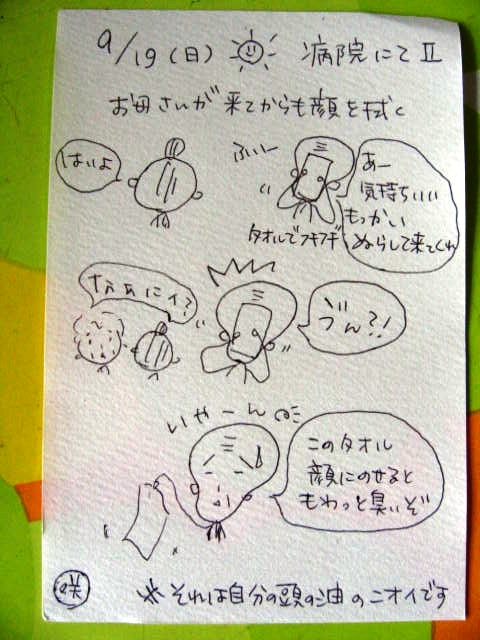 9/19(日) 病院にてⅡ
お母さんが来てからも顔を拭く
はいよ
ふぃー
あー
気持ちいい
もっかい
ぬらして来てくれ
タオルでフキフキ
なあにィ?
づん?!
いやーん
このタオル
顔にのせると
もわっと臭いぞ
咲
※それは自分の頭の油のニオイです